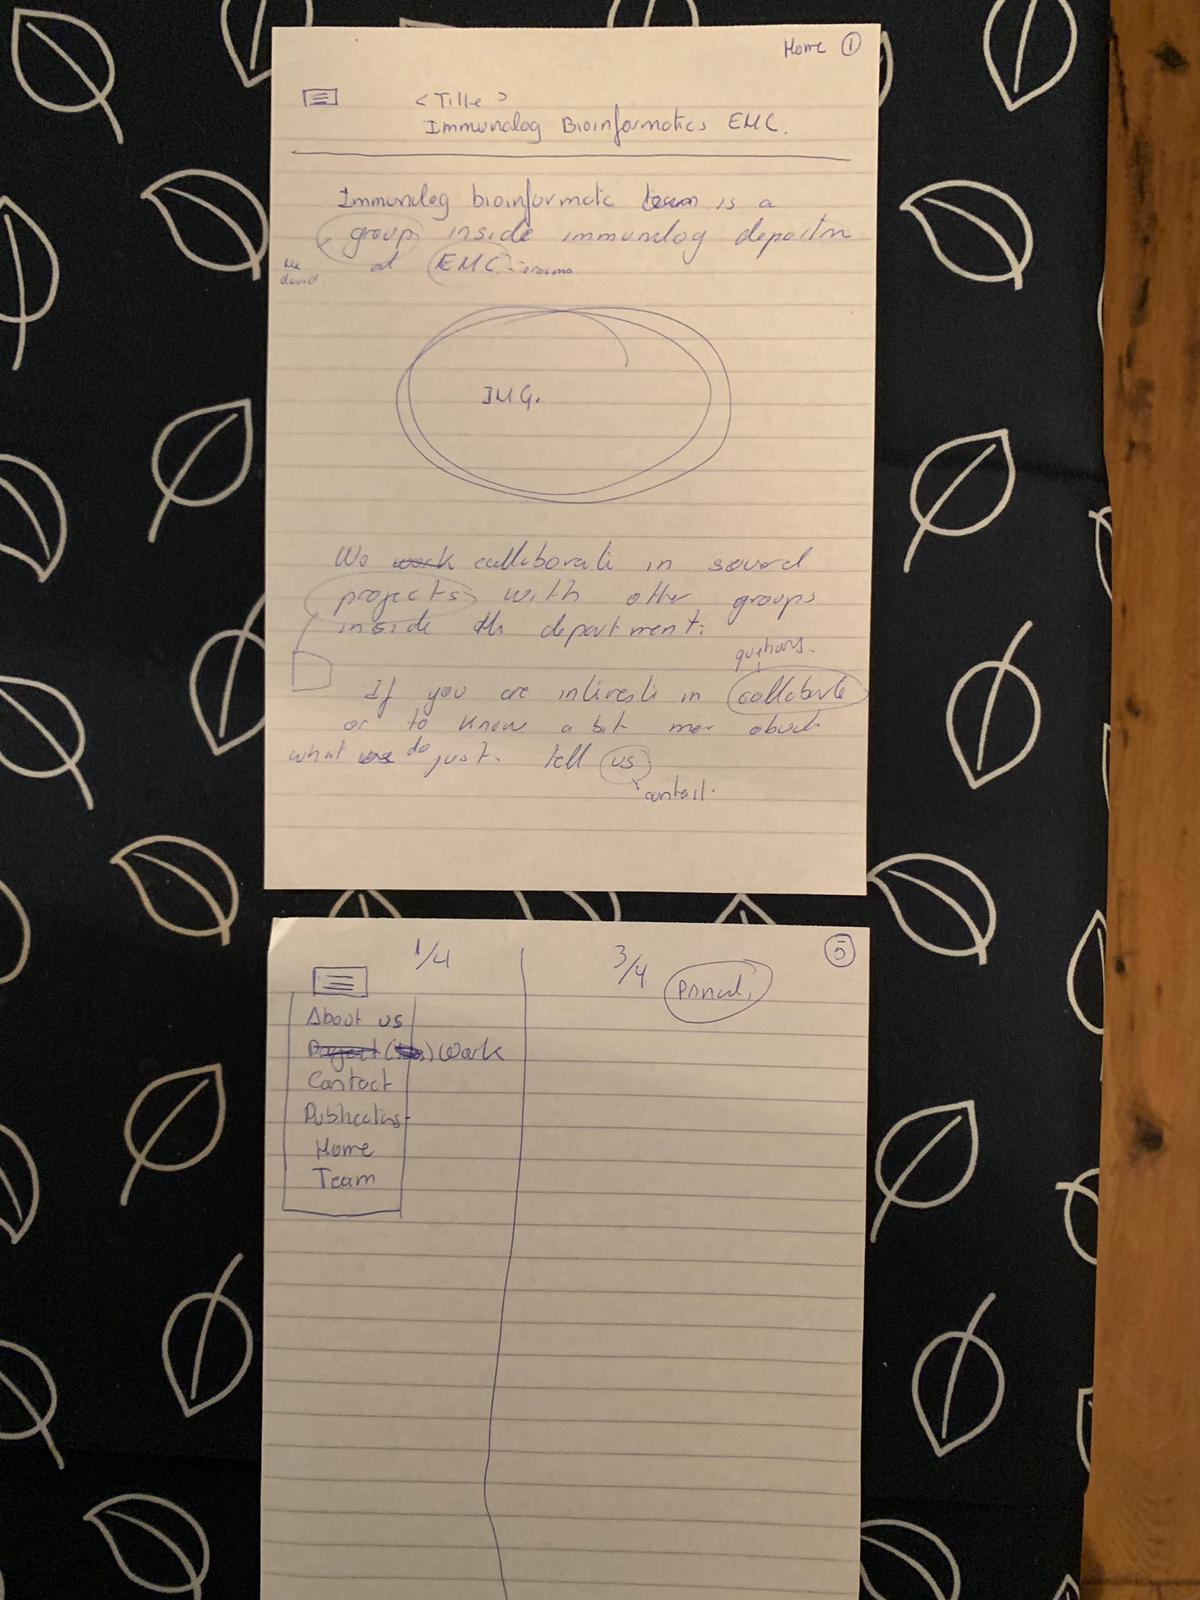 Home 1
< Title >
Immunolog Bioinformatics EMC.
Immunolog bioinformatic team is a
group inside immunolog
at EMC
david.
IMG.
We work collaborati in several
projects with other groups
inside the department.
If you are interesti in collabarte
or to know a bit mor about
what do just. tell us
contact.
5
1/4
3/4
About us
Project Work
Contact
Home
Team